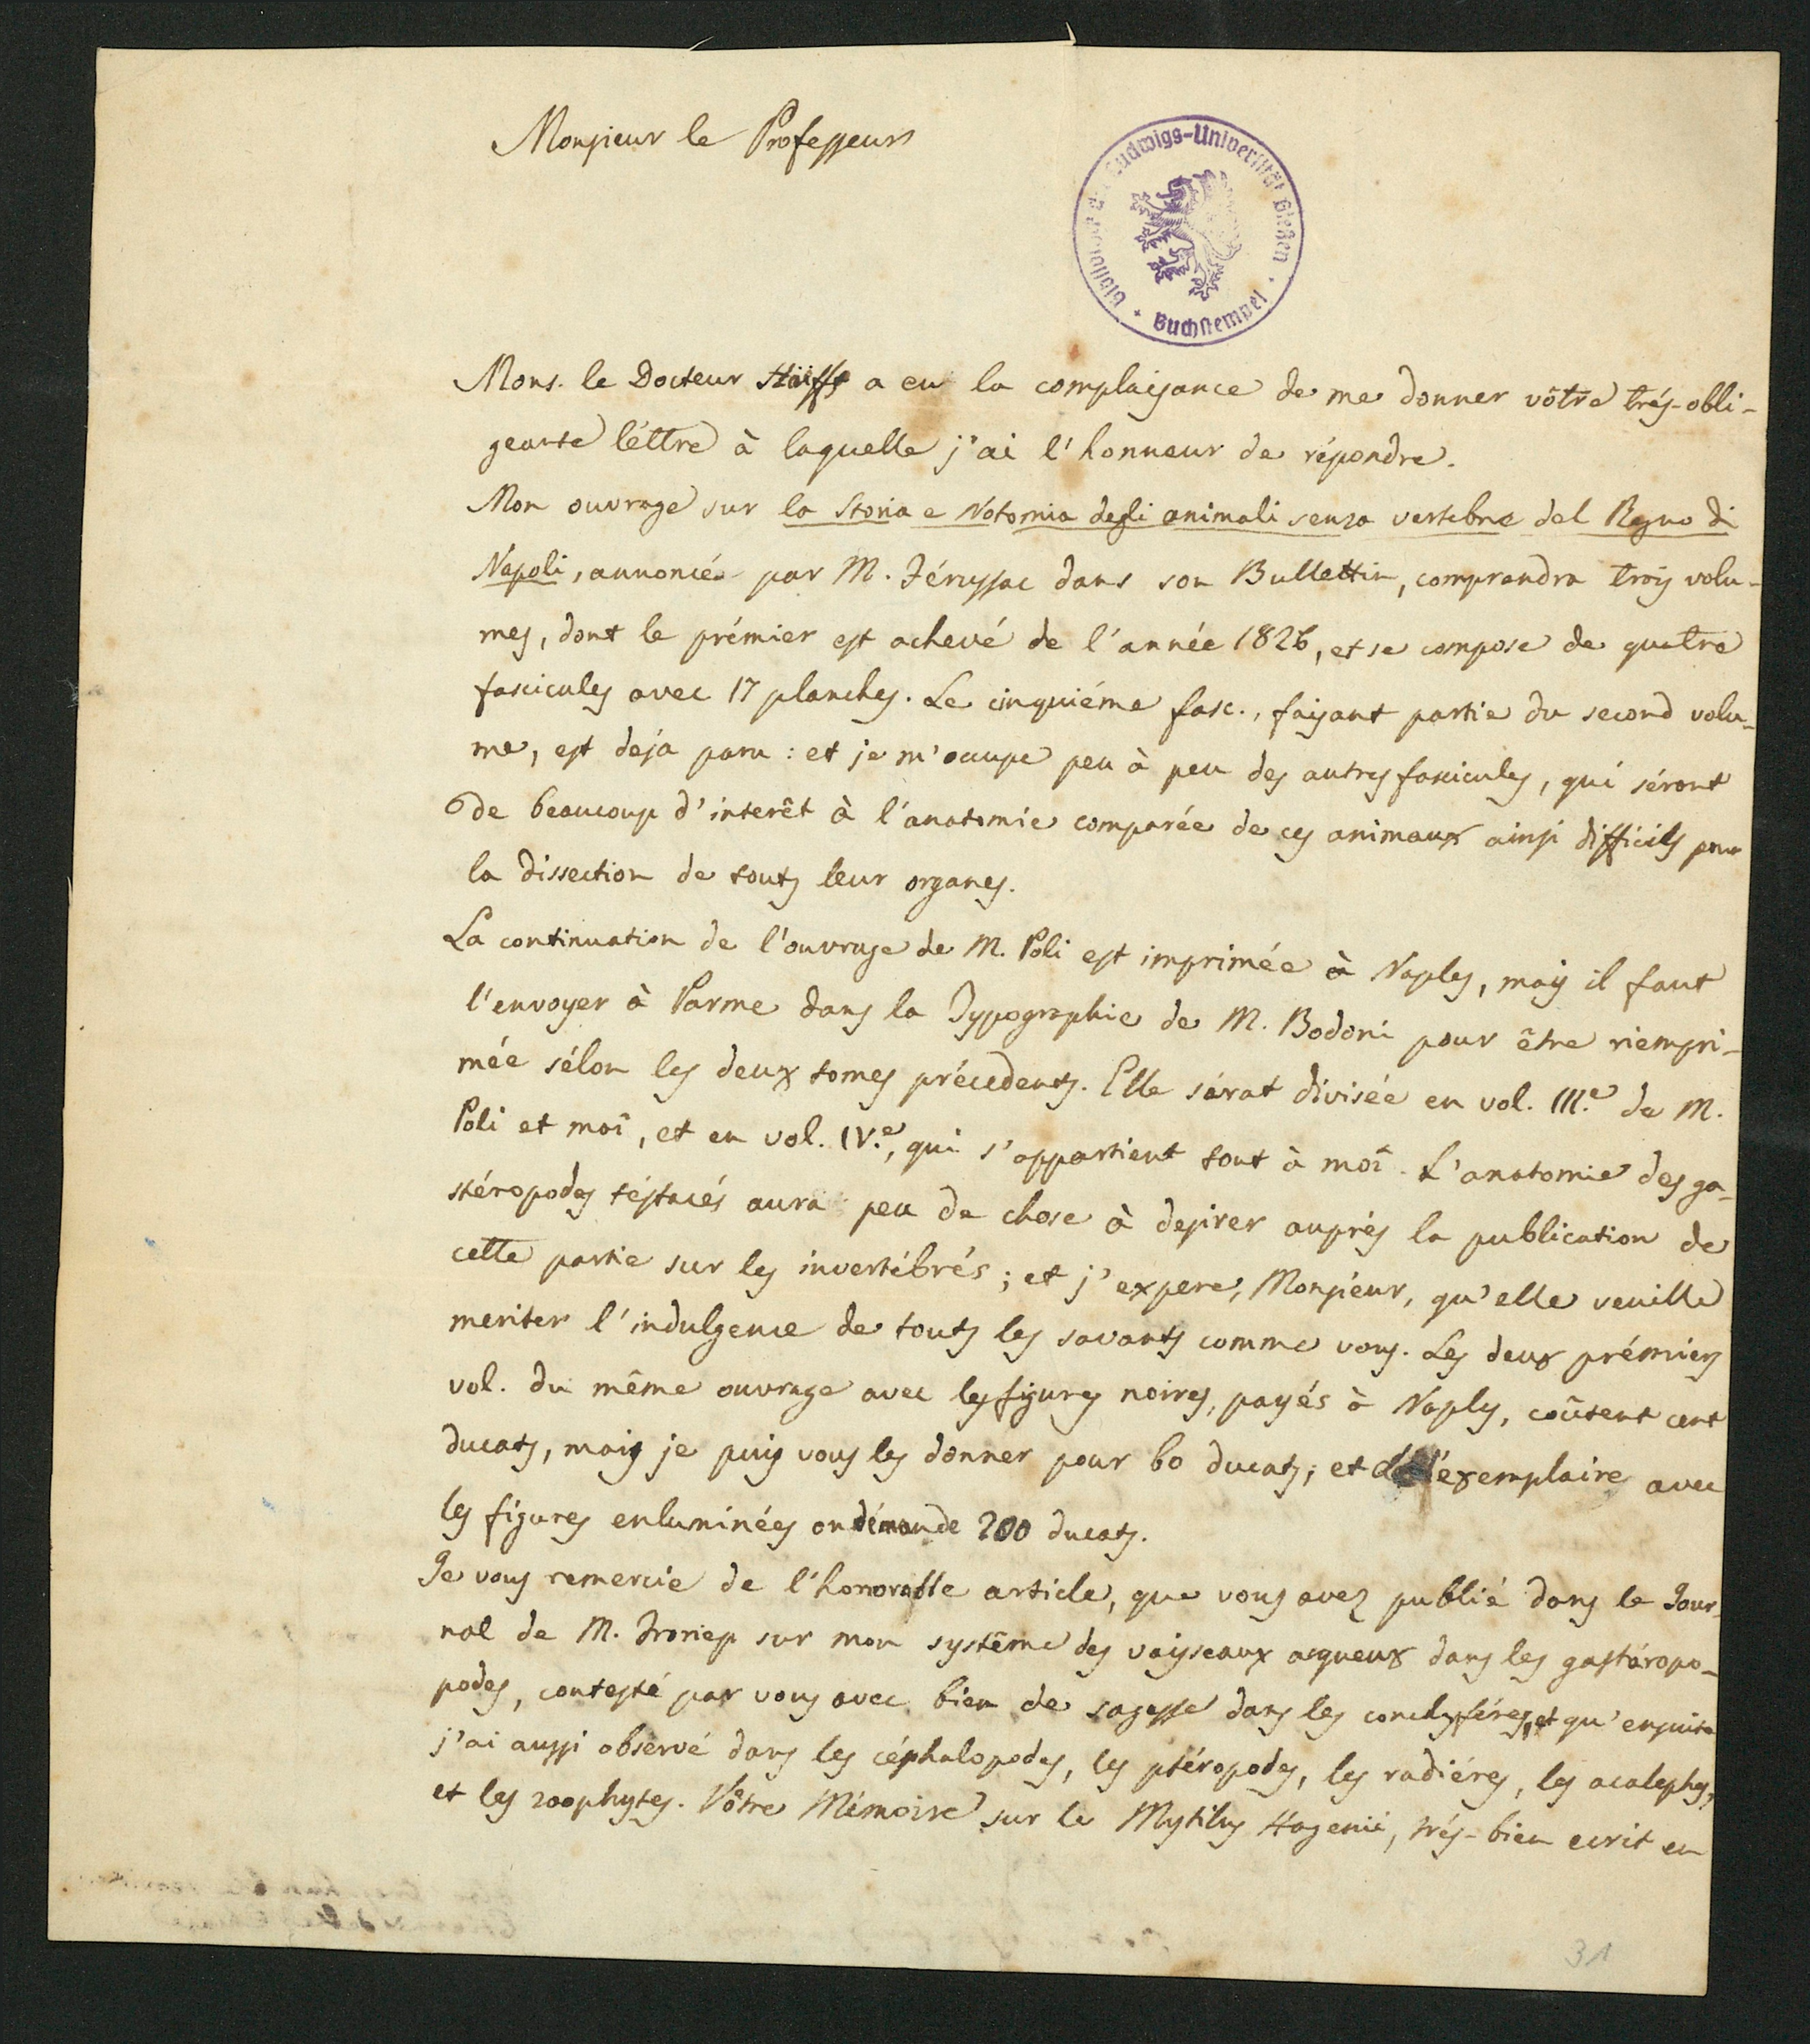 Monsieur le Professeur
Bibliothek der Ludwigs-Universität Gießen
Buchstempel
Mons. le Docteur a eu la complaisance de me donner vôtre trés-obli-
geante léttre à laquelle j'ai l'honneur de répondre.
Mon ouvrage sur la Storia e Notomia degli animali senza vertebre del Regno di
Napoli, annoncé par M. Férussac dans son Bullettin, comprendra trois volu-
mes, dont le prémier est achevé de l'année 1826, et se compose de quatre
fascicules avec 17 planches. Le cinquiéme fasc., faisant partie du second volu-
me, est deja paru: et je m'occupe peu à peu des autres fascicules, qui séront
de beaucoup d'interêt à l'anatomie comparée de ces animaux ainsi difficils pour
la dissection de touts leur organes.
La continuation de l'ouvrage de M. Poli est imprimée à Naples, mais il faut
l'envoyer à Parme dans la Typographie de M. Bodoni pour être riempri-
mée sélon les deux tomes précedents. Elle sérat divisée en vol. III.e de M.
Poli et moî, et en vol. IV.e, qui s'appartient tout à moî. L'anatomie des ga-
stéropodes téstacés aura peu de chose à desirer auprés la publication de
cette partie sur les invertébrés; et j'expere, Monsieur, qu'elle veuille
meriter l'indulgence de touts les savants comme vous. Les deux prémiers
vol. du même ouvrage avec les figures noires, payés à Naples, coûtent cent
ducats, mais je puis vous les donner pour 60 ducats; et de l'éxemplaire avec
les figures enluminées on démande 200 ducats.
Je vous remercie de l'honorable article, que vous avez publié dans le Jour-
nal de M. Froriep sur mon système des vaisseaux acqueux dans les gastéropo-
podes, contesté par vous avec bien de sagesse dans les conchyféres, et qu'ensuite
j'ai aussi observé dans les céphalopodes, les ptéropodes, les radiéres, les acalephes,
et les zoophytes. Vôtre Mémoire sur le Mytilus Hagenii, trés-bien ecrit en
31